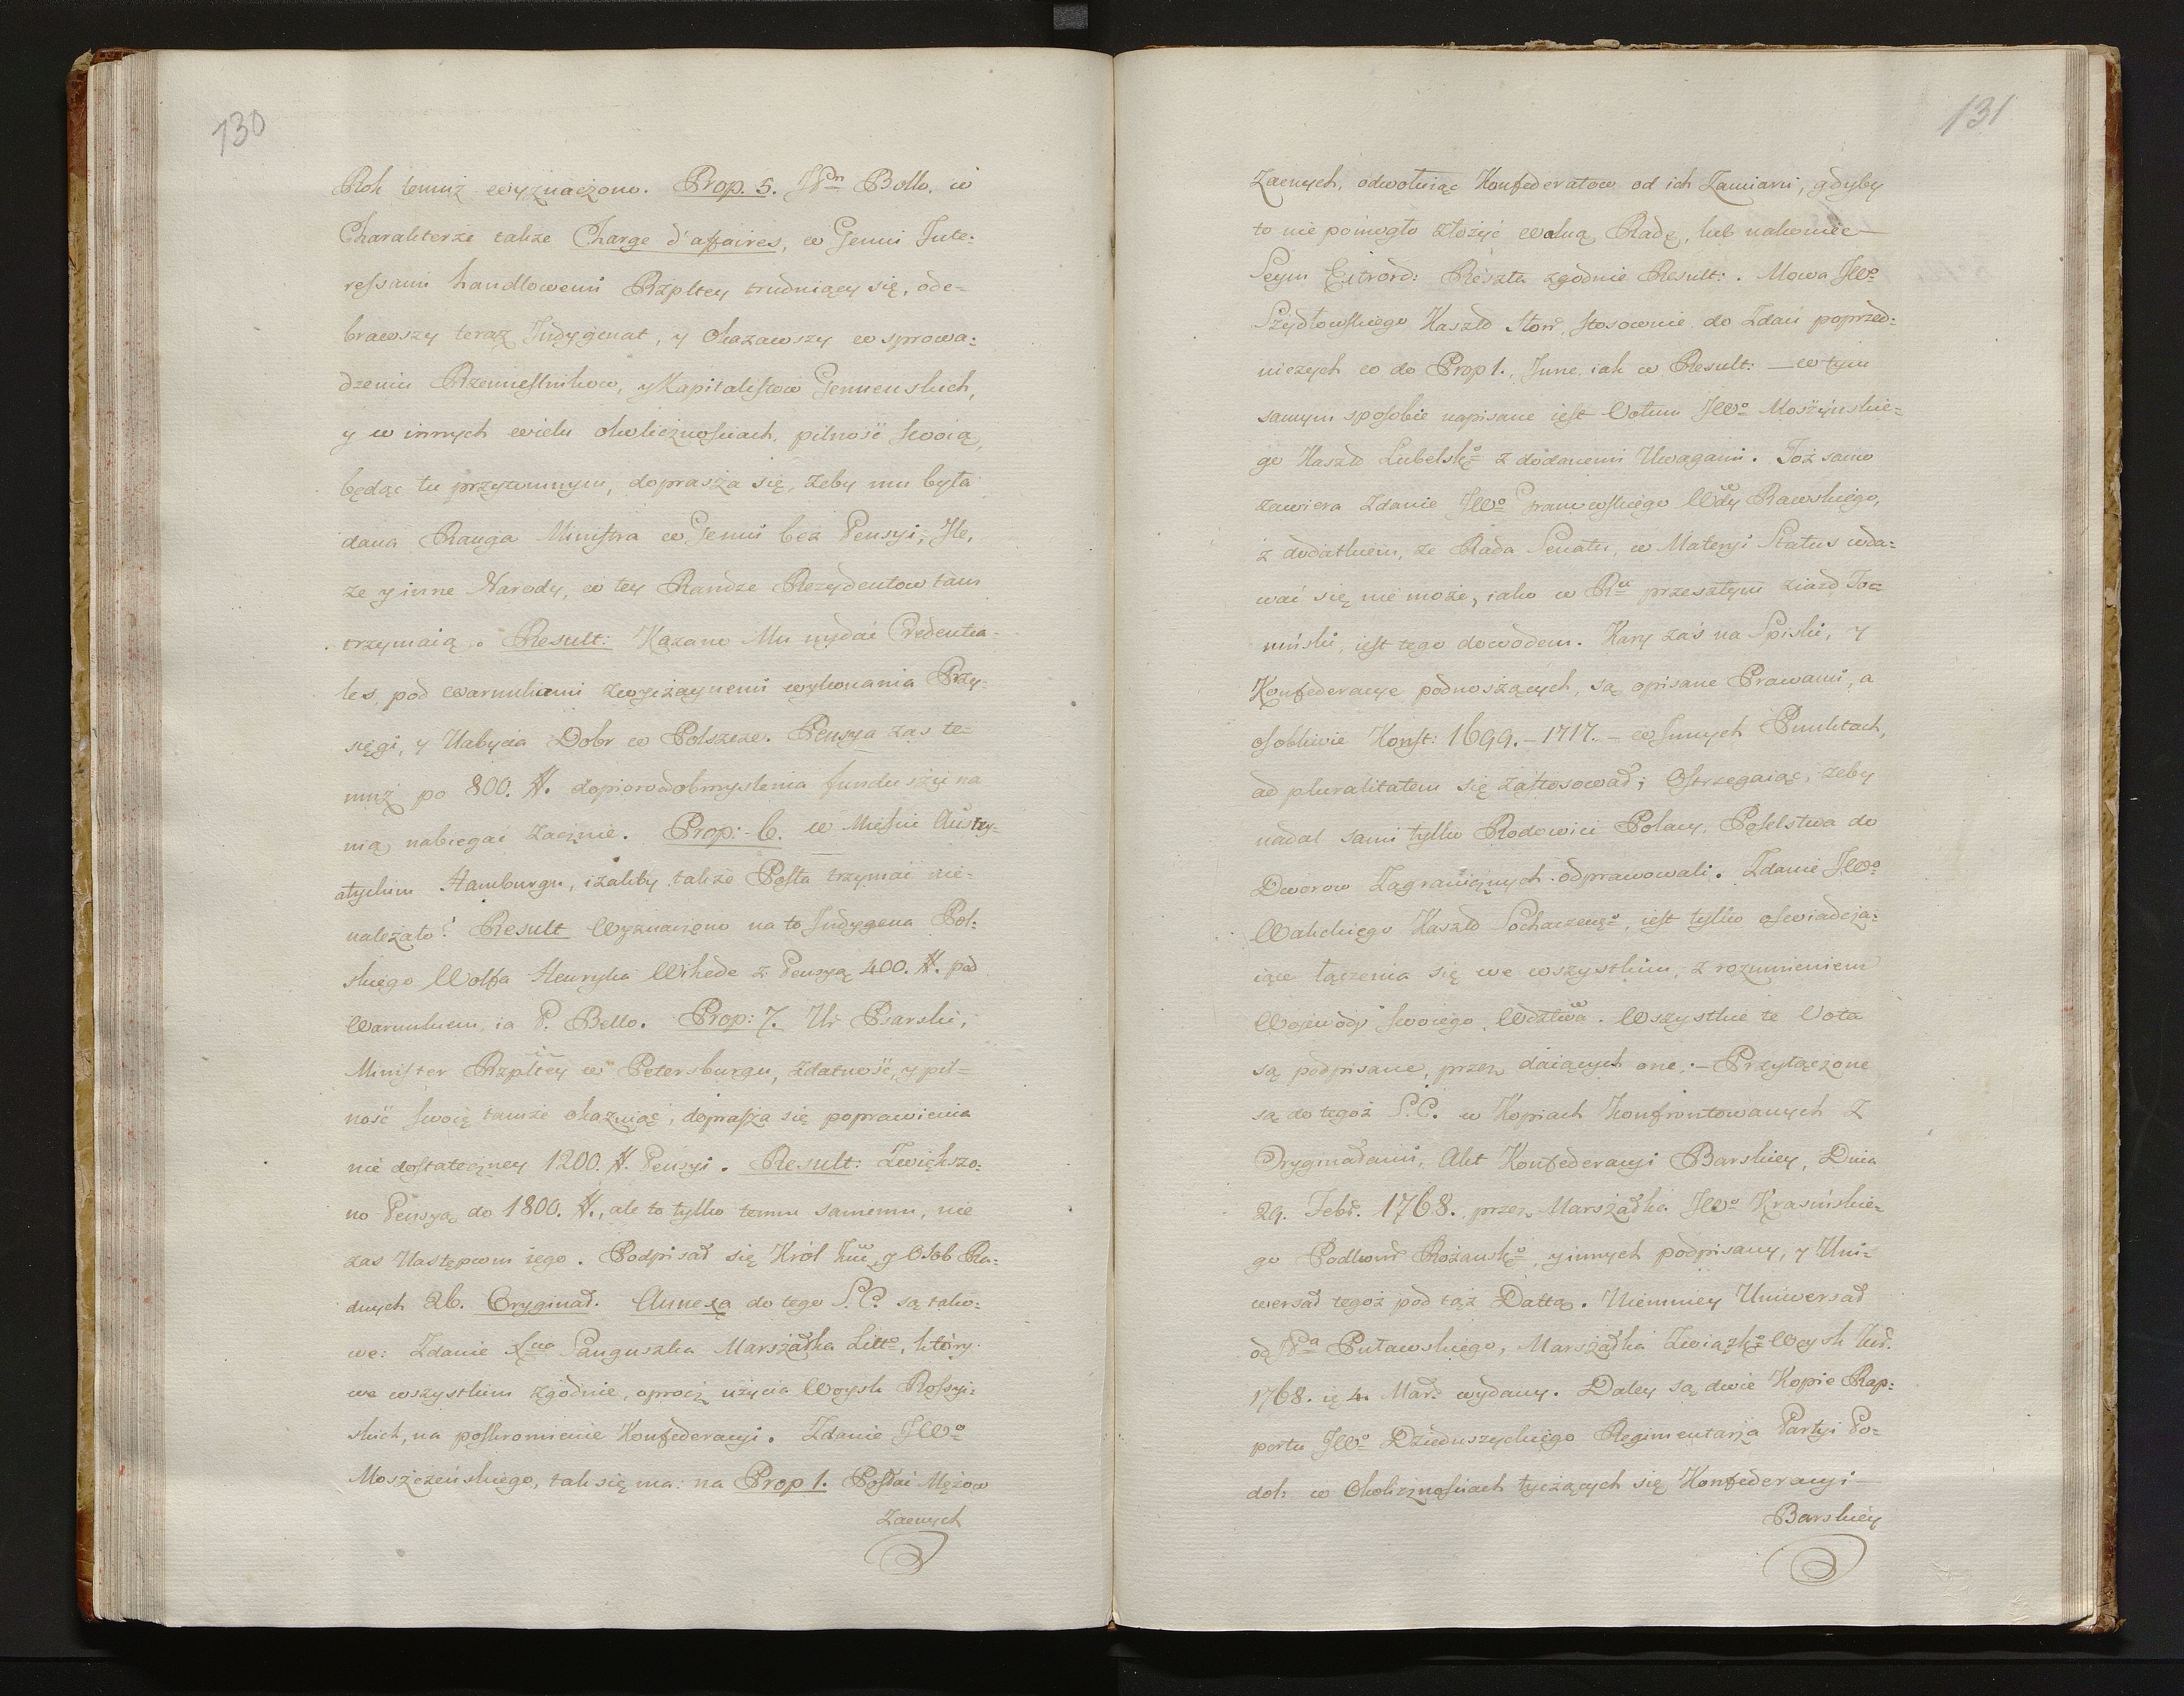 130
Rok temuż wyznaczono. Prop. 5. JPn Bollo, w
Charakterze także Charge d'affaires, w Genui Inte-
ressami handlowemi Rzpltey trudniący się, ode-
brawszy teraz Indygenat, y okazawszy w sprowa-
dzeniu Rzemieslnikow, y Kapitalistow Genuenskich,
y w innych wielu okolicznosciach, pilność swoią,
będąc tu przytomnym, doprasza się, zeby mu była
dana Ranga Ministra w Genui bez Pensyi, Ile,
ze y inne Narody, w tey Randze Rezydentow tam
trzymaią. Result: Kazano Mu wydać Credentia-
les, pod warunkami zwyczaynemi wykonania Przy-
sięgi, y Nabycia Dobr w Polszcze. Pensya zas te-
muż po 800. #. dopiero od obmyslenia funduszu na
nią, nabiegać zacznie. Prop:- 6. w Miescie Austry-
atyckim Hamburgu, izaliby także Posta trzymać nie-
należało? Result Wyznaczono na to Indygena Pol-
skiego Wolfa Henryka Wihede z Pensyą 400. #. pod
Warunkiem, ia P. Bello. Prop: 7. Ur Psarski,
Minister Rzpltey w Petersburgu, zdatność, y pil-
ność swoię tamże okazuiąc, doprasza się poprawienia
nie dostateczney 1200. #. Pensyi. Result: Zwiększo-
no Pensyą do 1800. #., ale to tylko temu samemu, nie
zas Następcom iego. Podpisał się Król Imć, y Osob Ra-
dnych 26. Oryginał. Annexa do tego S.C. są tako-
we: Zdanie Xna Sanguszka Marszałka Litto, który
we wszystkim zgodnie, oprocz użycia Woysk Rossyi-
skich, na poskromienie Konfederacyi. Zdanie JWo
Moszczeńskiego, tak się ma: na Prop 1. Posłać Mężow
Zacnych
131
Zacnych, odwołuiąc Konfederatow od ich Zamiaru, gdyby
to nie pomogło złożyć walną Radę, lub nakoniec—
Seym Extrord: Reszta zgodnie Result:. Mowa JWo
Szydłowskiego Kaszld Słoń, stosownie do Zdań poprzed-
niczych co do Prop 1., Inne, iak w Result: — w tym
samym sposobie napisane iest Votum JWo Moszyńskie-
go Kaszld Lubelsko z dodanemi Uwagami. Toż samo
zawiera Zdanie JWo Granowskiego Wdy Rawskiego,
z dodatkiem, ze Rada Senatu, w Materyi Status wda-
wać się nie może, iako w Ru przeszłym ziazd To-
ruński, iest tego dowodem. Kary zaś na Spiski, y
Konfederacye podnoszących, są opisane Prawami, a
osobliwie Konst: 1699.–1717.– w Innych Punktach,
ad pluralitatem się zastosował; Ostrzegaiąc, zeby
nadal sami tylko Rodowici Polacy, Poselstwa do
Dworow Zagranicznych odprawowali. Zdanie JWo
Walickiego Kaszld Sochaczewgo, iest tylko oświadcza-
iące łączenia się we wszystkim, z rozumieniem
Wojewody swoiego Wdztwa. Wszystkie te Vota
są podpisane, przez daiących one.– Przyłączone
są do tegoż S.C. w Kopiach konfrontowanych z
Oryginałami, Akt Konfederacyi Barskiey, Dnia
29. Febr. 1768. przez Marszałka JWo Krasińskie-
go Podkom Rożansko, y innych podpisany, y Uni-
wersał tegoż pod tąż Dattą. Niemniey Uniwersał
od JPa Puławskiego, Marszałka Związko Woysk Kor.
1768. 4. Mar. wydany. Daley są dwie Kopie Rap-
portu JWo Dzieduszyckiego Regimentarza Partyi Po-
dol: w Okolicznosciach tyczących się Konfederacyi—
Barskiey